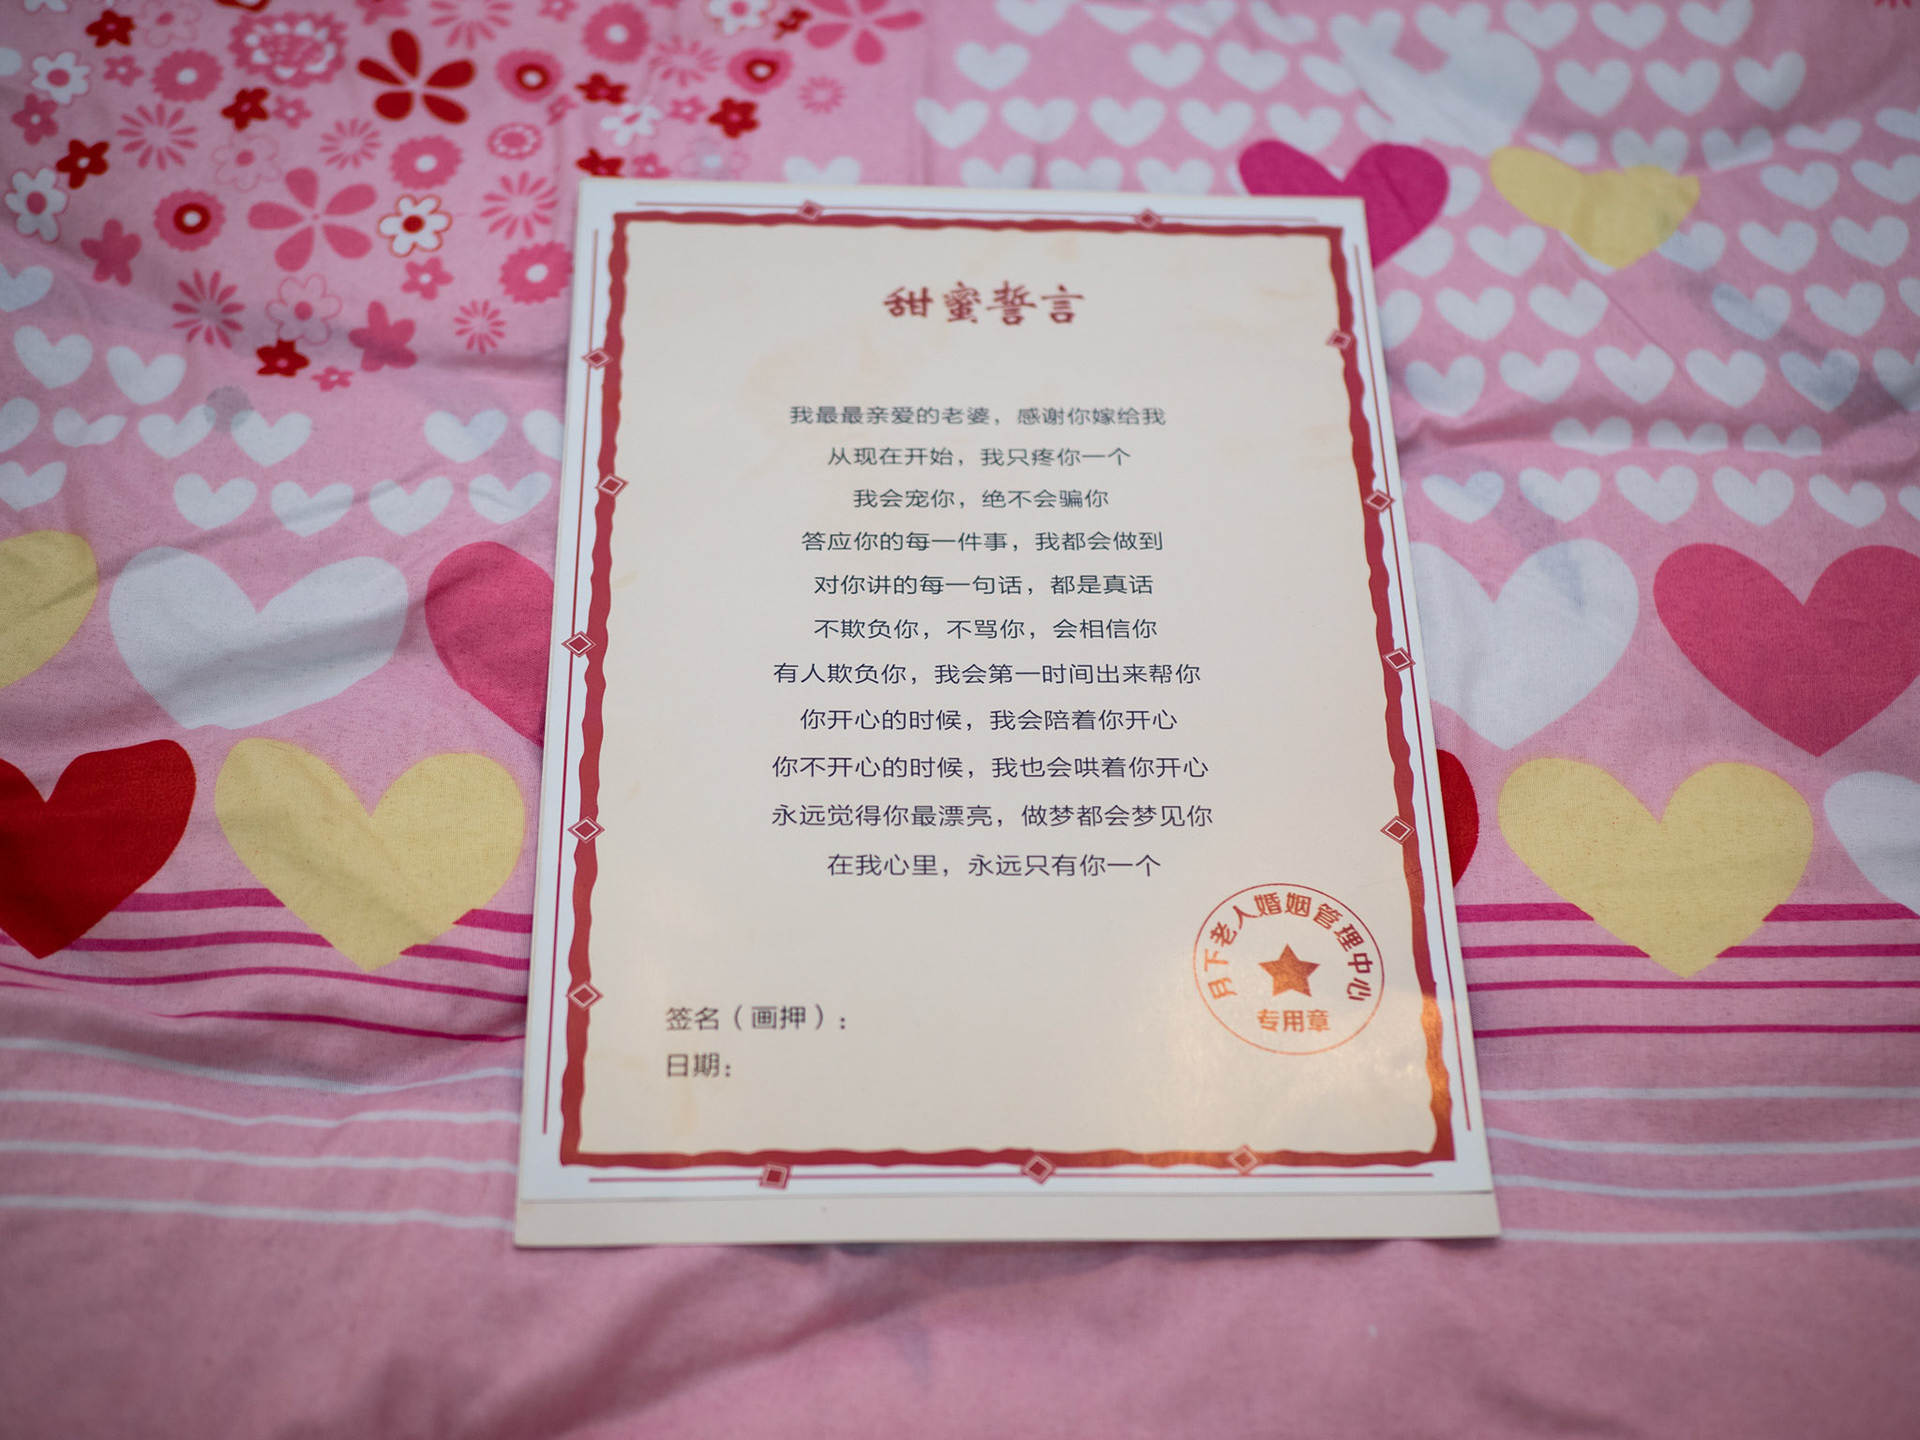 甜蜜誓言
我最最亲爱的老婆，感谢你嫁给我
从现在开始，我只疼你一个
我会宠你，绝不会骗你
答应你的每一件事，我都会做到
对你讲的每一句话，都是真话
不欺负你，不骂你，会相信你
有人欺负你，我会第一时间出来帮你
你开心的时候，我会陪着你开心
你不开心的时候，我也会哄着你开心
永远觉得你最漂亮，做梦都会梦见你
在我心里，永远只有你一个
月下老人婚姻管理中心
专用章
签名（画押）：
日期：